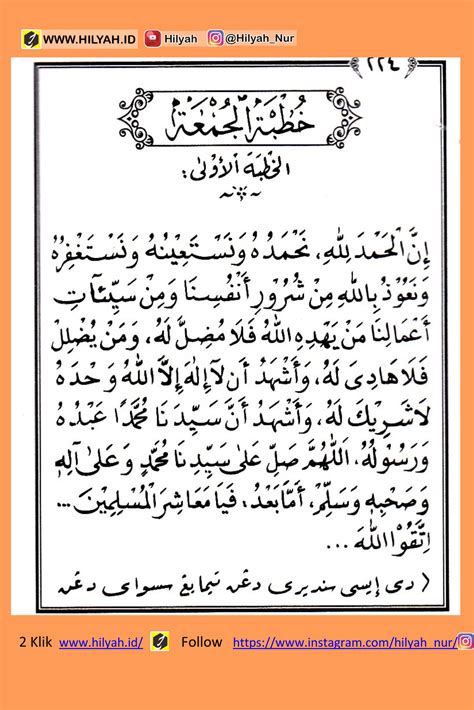 WWW.HILYAH.ID Hilyah @Hilyah_Nur
٢٢٤
خُطْبَةُ الْجُمْعَةِ
الخطبة الأولى:
إِنَّ الْحَمْدَ لِلّٰهِ، نَحْمَدُهُ وَنَسْتَعِيْنُهُ وَنَسْتَغْفِرُهُ
وَنَعُوْذُ بِاللّٰهِ مِنْ شُرُوْرِ أَنْفُسِنَا وَمِنْ سَيِّئَاتِ
أَعْمَالِنَا مَنْ يَهْدِهِ اللّٰهُ فَلَا مُضِلَّ لَهُ، وَمَنْ يُضْلِلْ
فَلَا هَادِيَ لَهُ، وَأَشْهَدُ أَنْ لَا إِلٰهَ إِلَّا اللّٰهُ وَحْدَهُ
لَا شَرِيْكَ لَهُ، وَأَشْهَدُ أَنَّ سَيِّدَنَا مُحَمَّدًا عَبْدُهُ
وَرَسُوْلُهُ، اَللّٰهُمَّ صَلِّ عَلَى سَيِّدِنَا مُحَمَّدٍ وَعَلَى آلِهِ
وَصَحْبِهِ وَسَلِّمْ، أَمَّا بَعْدُ: فَيَا مَعَاشِرَ الْمُسْلِمِيْنَ ...
اِتَّقُوْا اللّٰهَ ...
( دي إيسي سنديري دڠن تيمابڠ سسواي دڠن
2 Klik www.hilyah.id/ Follow https://www.instagram.com/hilyah_nur/